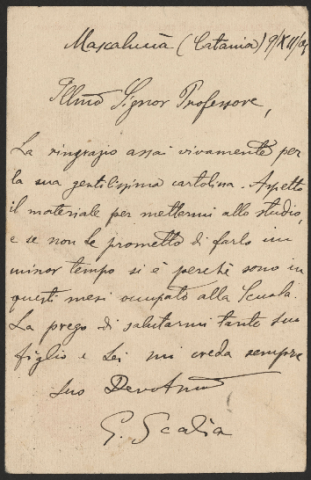 Mascalucia (Catania) 9/XII/05
Illmo Signor Professore,
La ringrazio assai vivamente per
la sua gentilissima cartolina. Aspetto
il materiale per mettermi allo studio,
e se non le prometto di farlo in
minor tempo si è perchè sono in
questi mesi occupato alla Scuola.
La prego di salutarmi tanto suo
figlio e Lei mi creda sempre
Suo Devotmo
G. Scalia